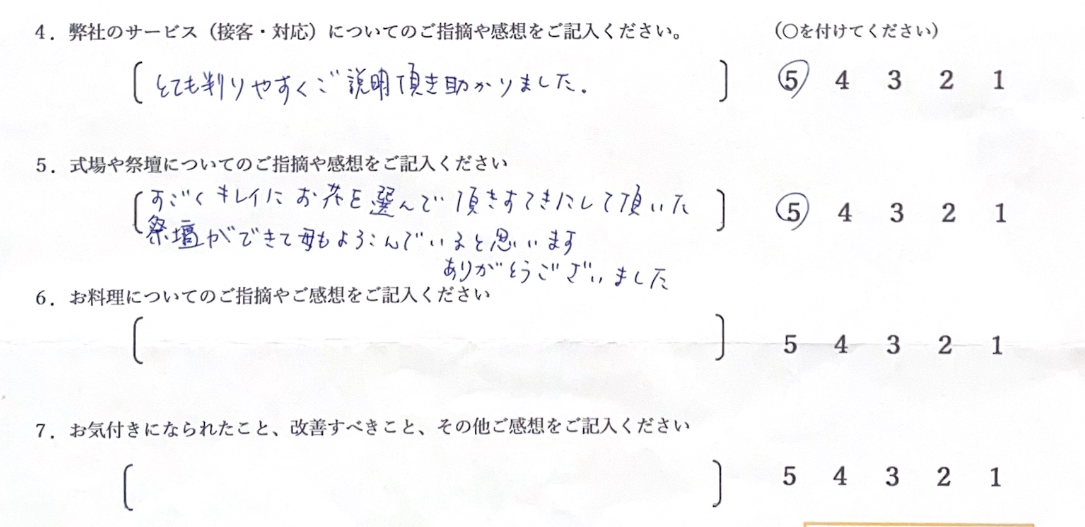 4．弊社のサービス（接客・対応）についてのご指摘や感想をご記入ください。 （○を付けてください）
とても判りやすくご説明頂き助かりました. 5 4 3 2 1
5．式場や祭壇についてのご指摘や感想をご記入ください
すごくキレイにお花を選んで頂きすてきにして頂いた 5 4 3 2 1
祭壇ができて母もよろこんでいると思います
ありがとうございました
6．お料理についてのご指摘やご感想をご記入ください
5 4 3 2 1
7．お気付きになられたこと、改善すべきこと、その他ご感想をご記入ください
5 4 3 2 1